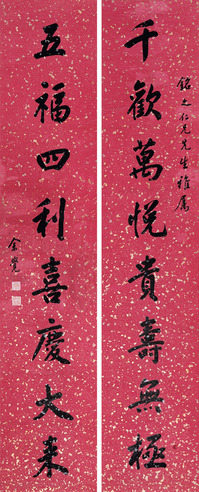 銘之仁兄先生雅屬
千歡萬悅貴壽無極
五福四利喜慶大來